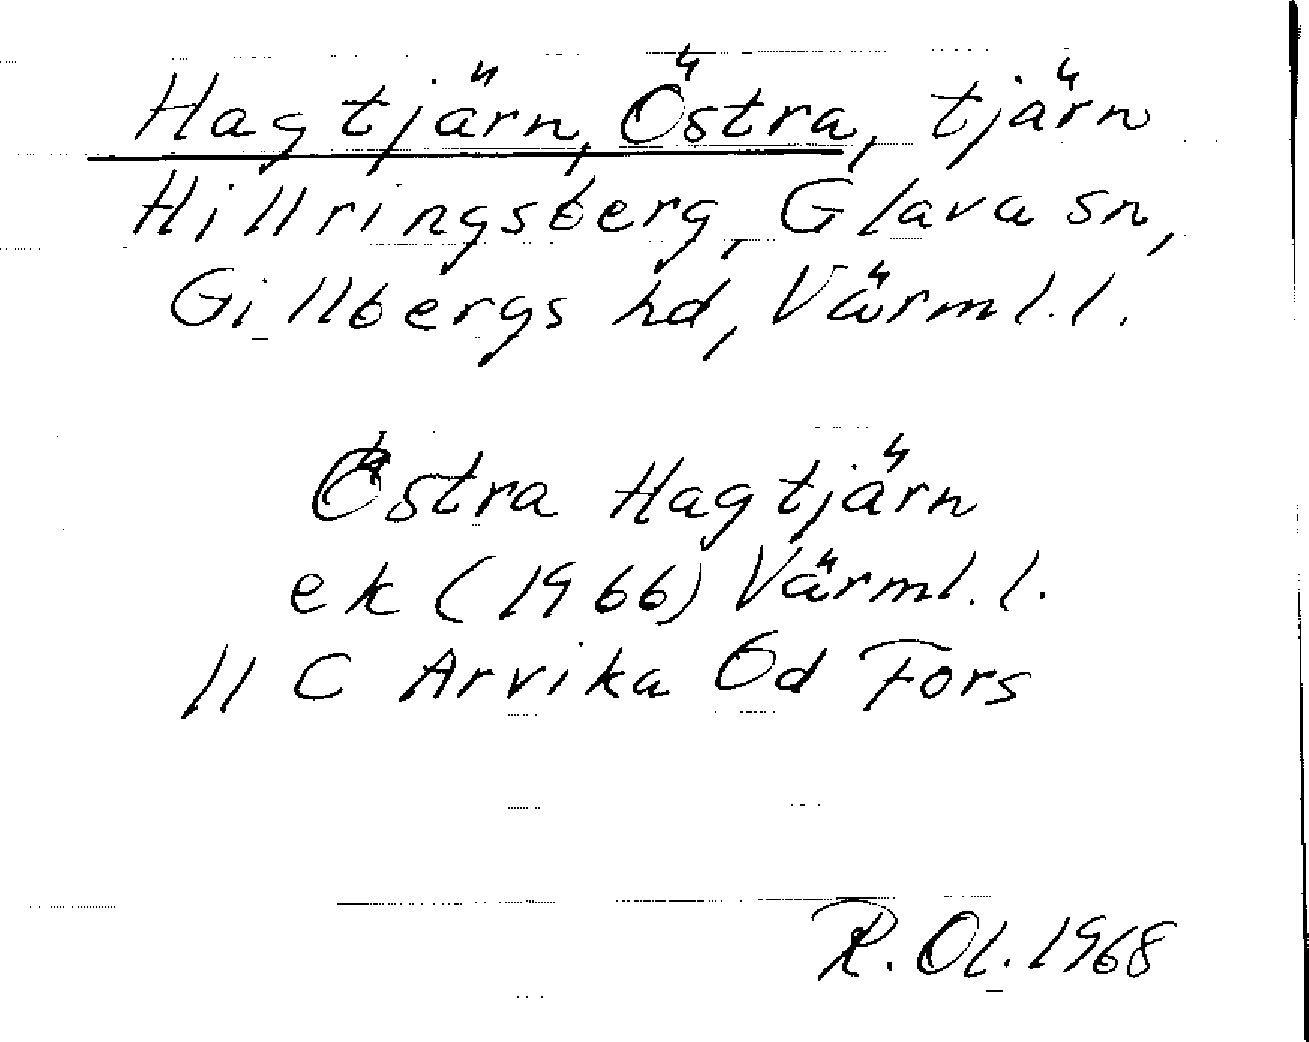 Hagtjärn, Östra, tjärn
Hillringsberg, Glava sn,
Gillbergs hd, Värml. l.
Östra Hagtjärn
ek (1966) Värml. l.
11 C Arvika Öd Fors
R. Ol. 1968